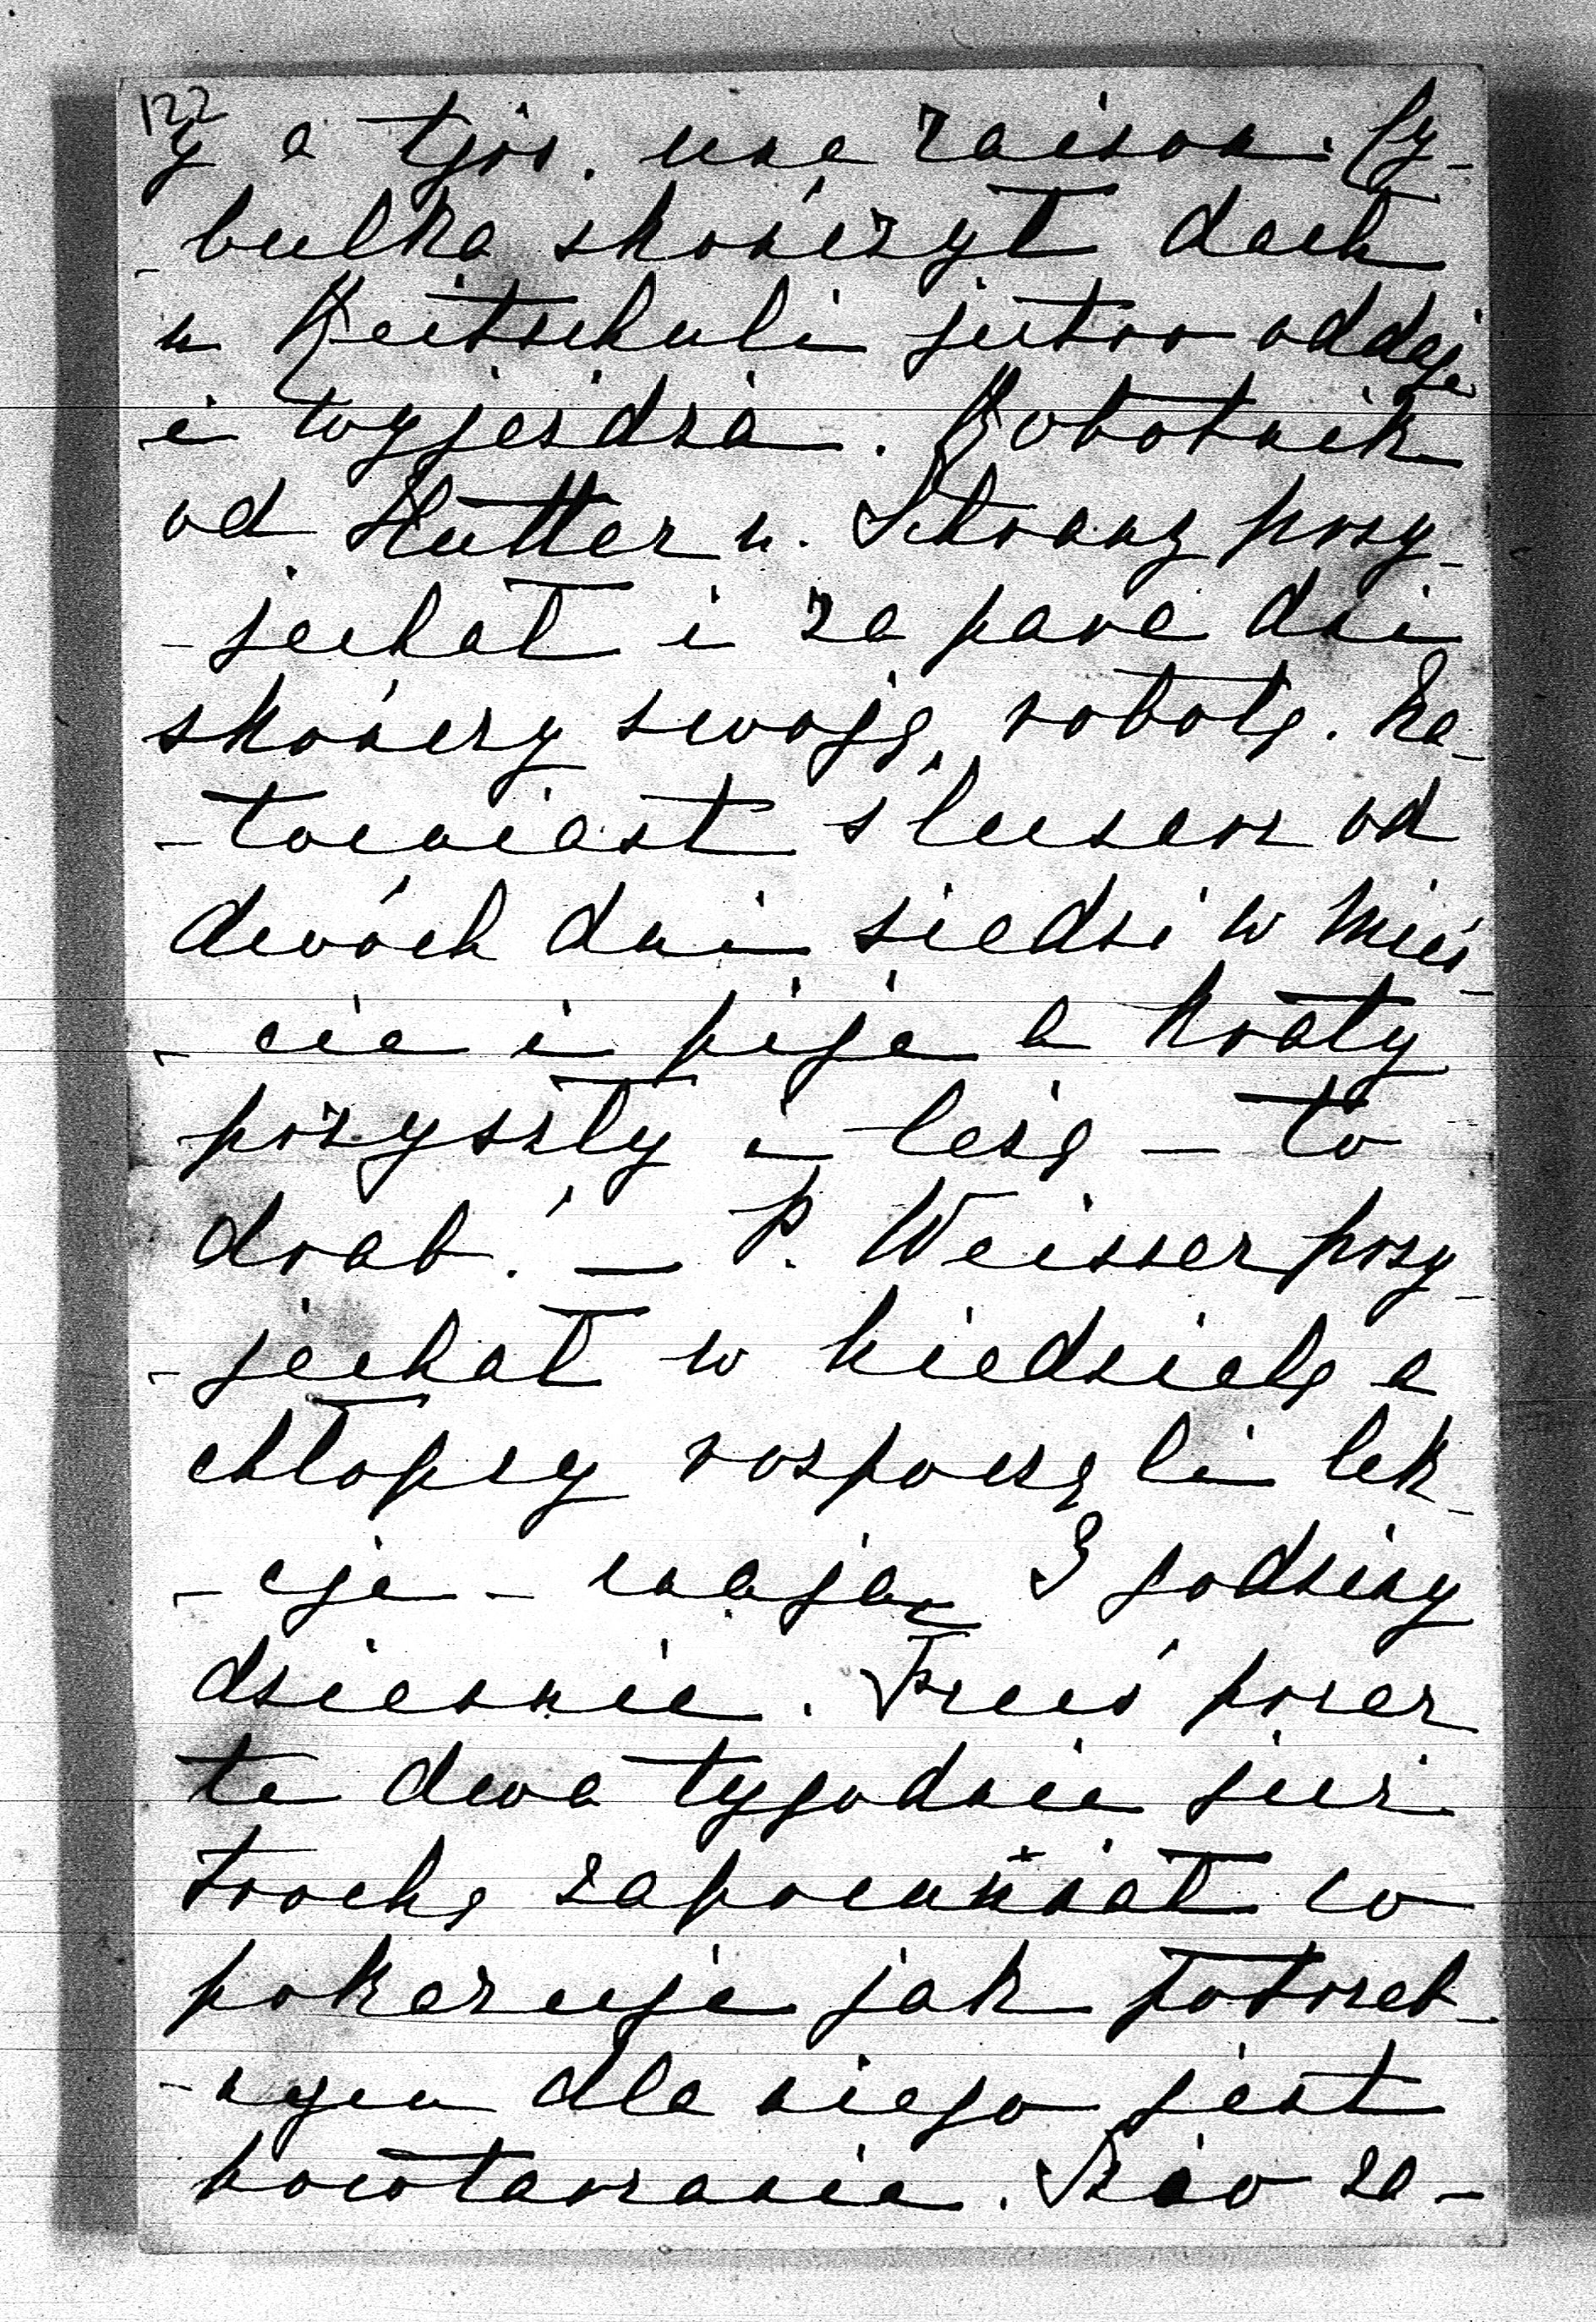 122
y a tjrs. une raison. Cy-
-bulka skończył dach
u Reitschuli jutro oddaje
i wyjeżdża. Robotnik
od Hutter u. Schranz przy-
-jechał i za parę dni
skończy swoję robotę. Na-
-tomiast ślusarz od
dwóch dni siedzi w mieś-
-cie i pije a kraty
przyszły i leżę — to
drab! — P. Weisser przy-
-jechał w niedzielę a
chłopcy rozpoczęli lek-
-cje - mają 3 godziny
dziennie. Franś przez
te dwa tygodnie już
trochę zapomniał co
pokazuje jak potrzeb-
-nym dla niego jest
powtarzanie. za-